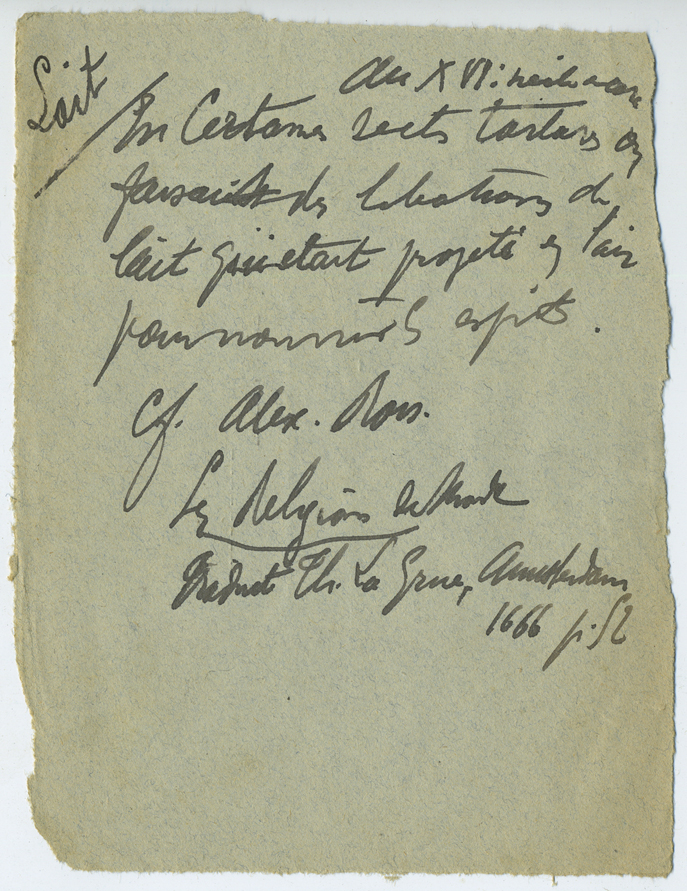 Lait
au XVI: siècle encore
En Certaines sects tartares on
faisait des libations de
lait qui était projeté en l'air
pour nourrir les esprits.
Cf. Alex. Ross.
Les Religions du Monde
Traduct Th. La Grue, Amsterdam
1666 p. 52